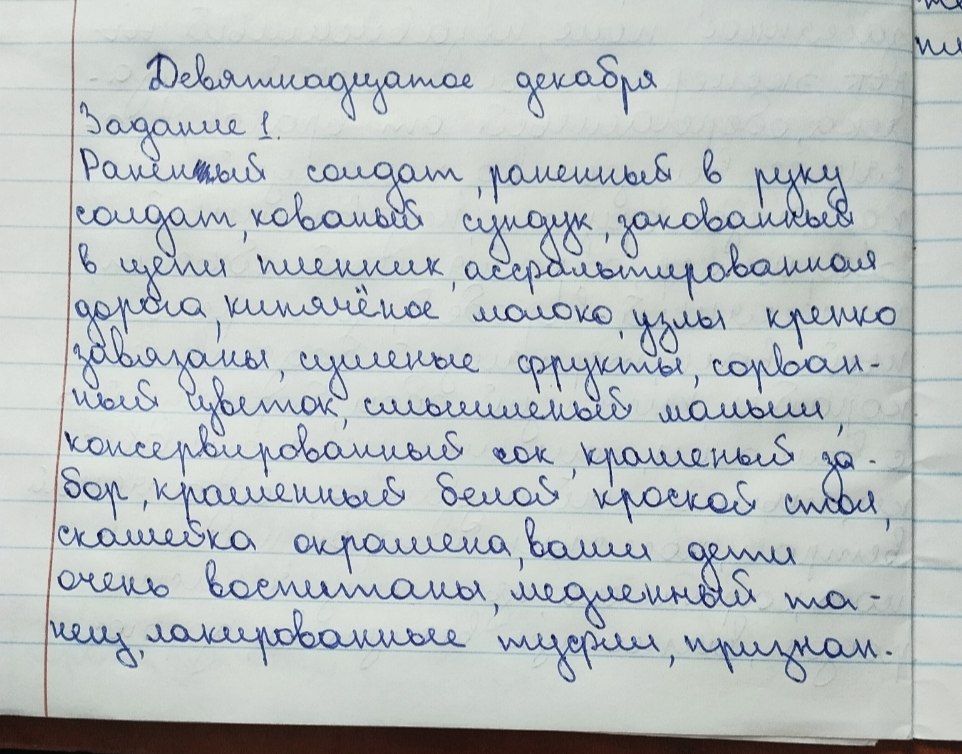 Девятнадцатое декабря
Задание 1.
Раненый солдат, раненный в руку
солдат, кованый сундук, закованный
в цепи пленник, асфальтированная
дорога, кипячёное молоко, узлы крепко
завязаны, сушеные фрукты, сорван-
ный цветок, смышленый малыш,
консервированный сок, крашеный за-
бор, крашенный белой краской стол,
скамейка окрашена, ваши дети
очень воспитаны, медленный та-
нец, лакированные туфли, признан-